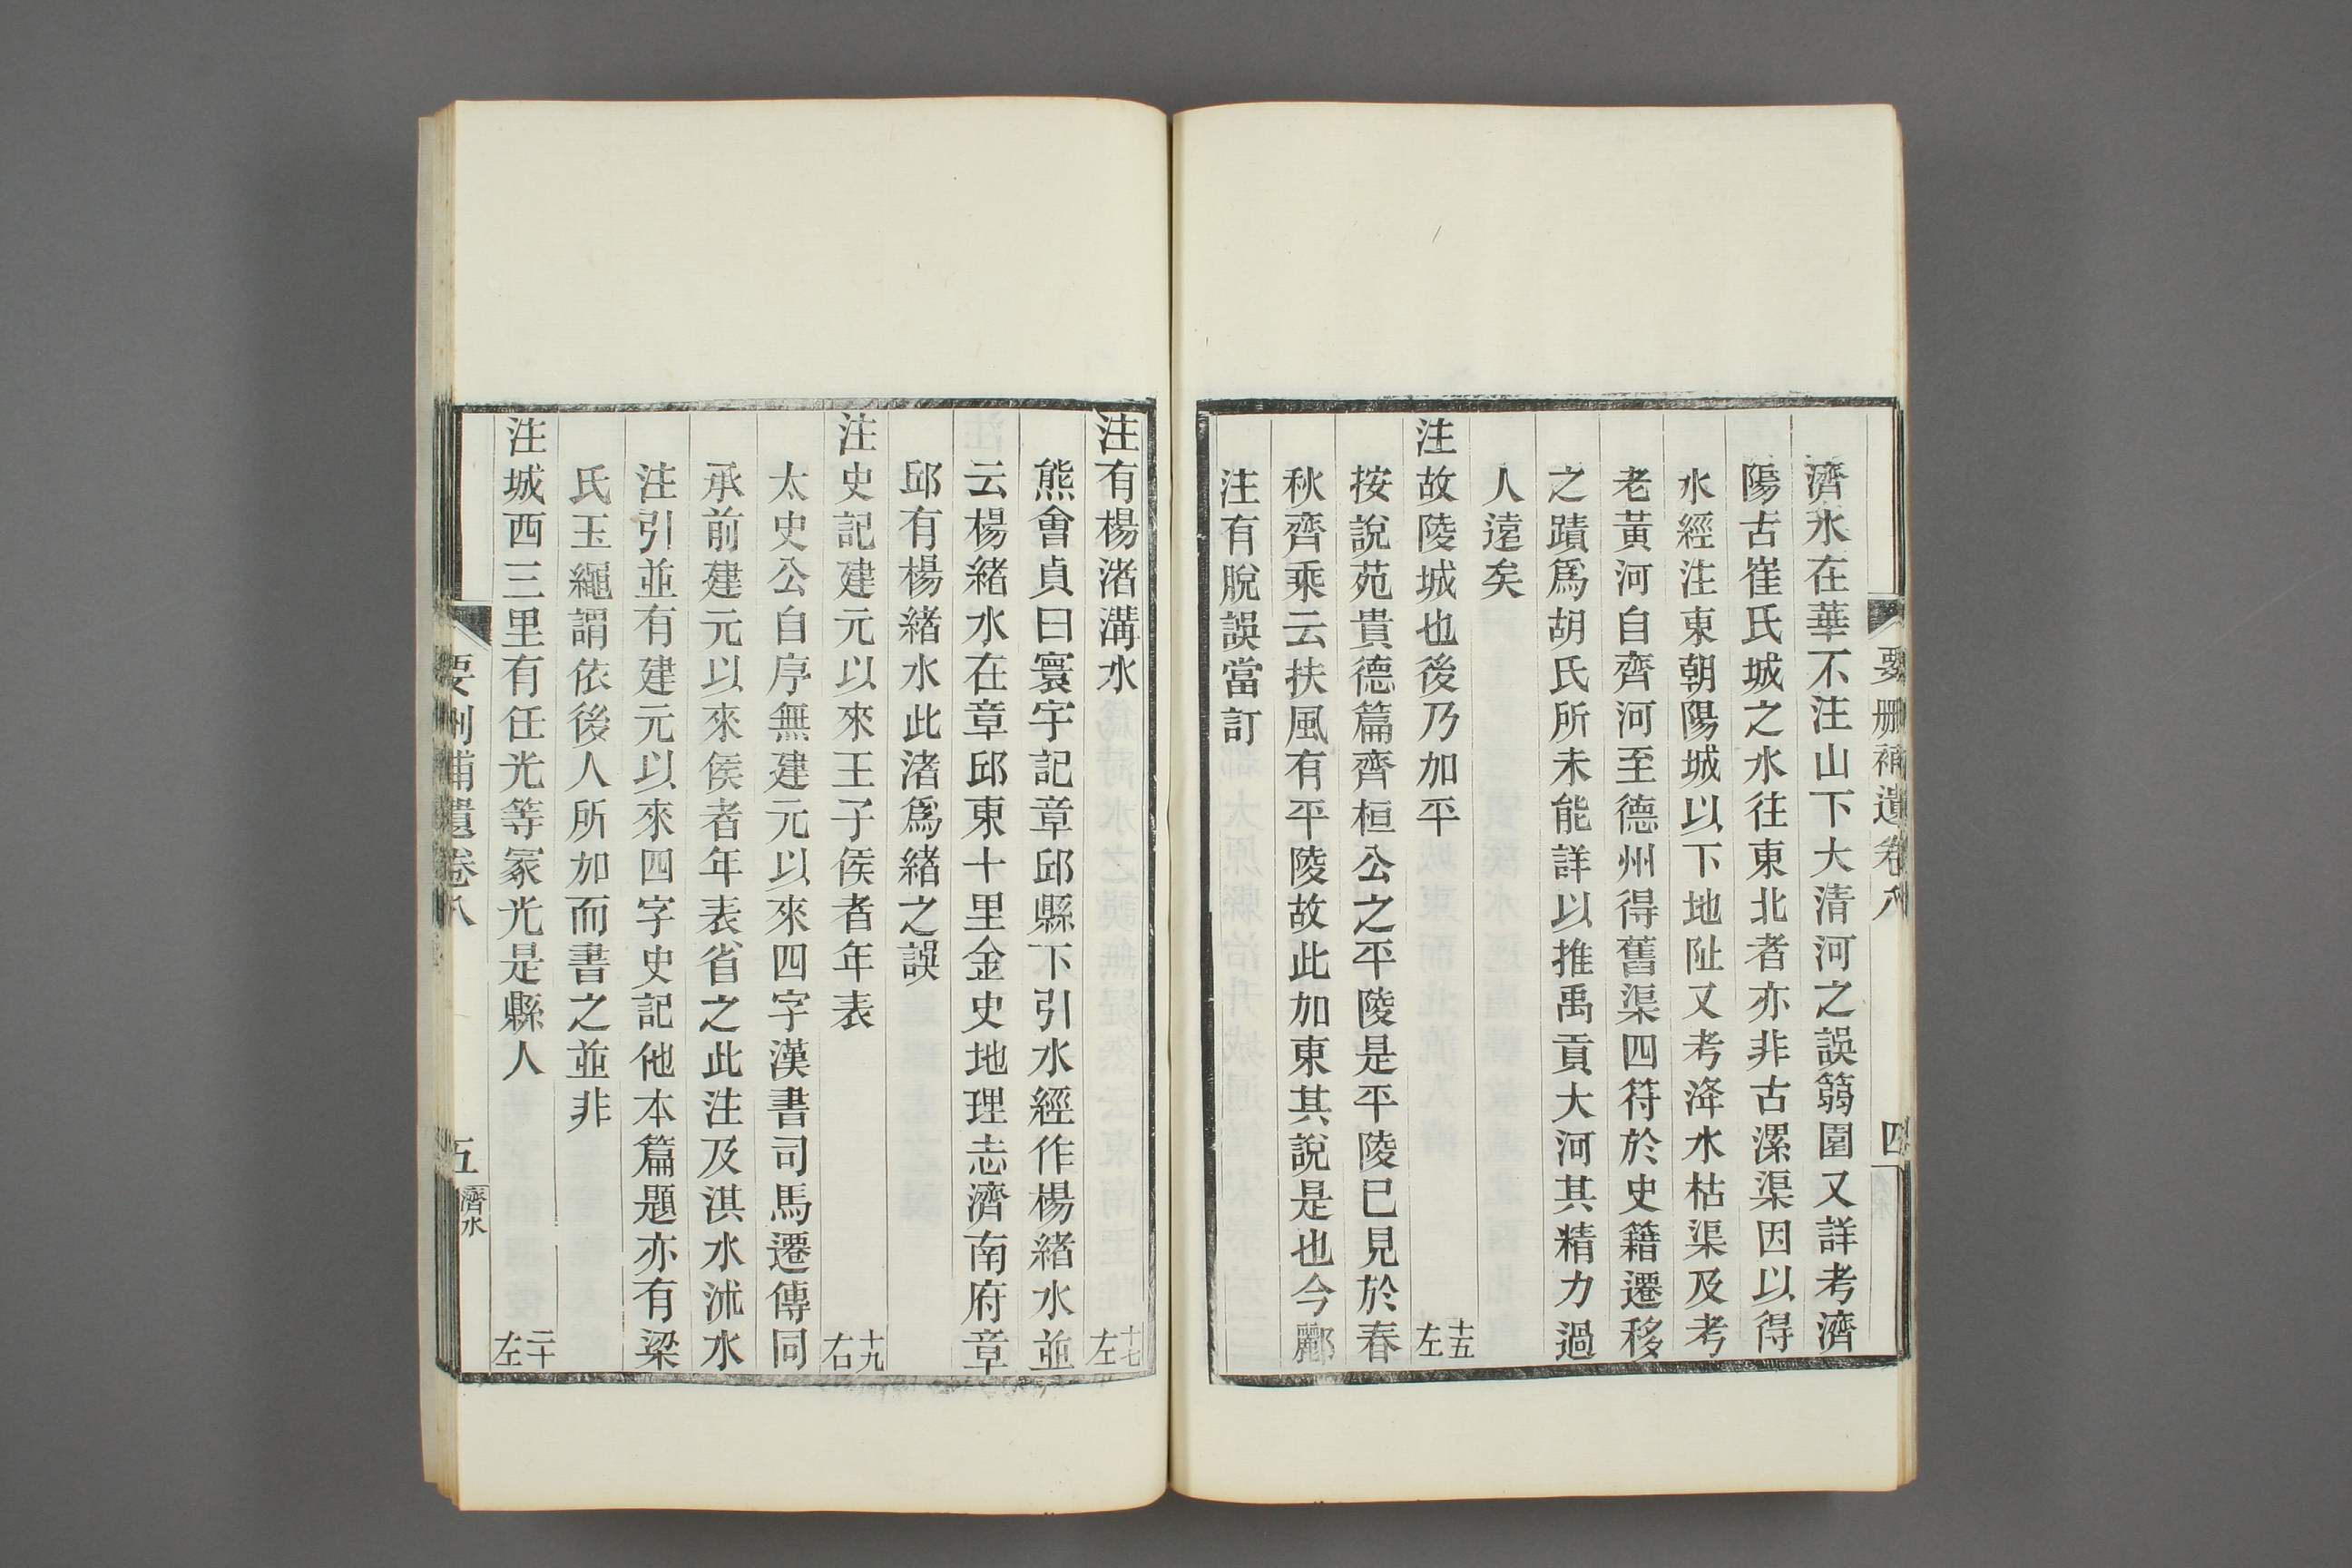 要刪補遺卷八
四
濟水在華不注山下大清河之誤篛園又詳考濟
陽古崔氏城之水往東北者亦非古漯渠因以得
水經注東朝陽城以下地阯又考洚水枯渠及考
老黃河自齊河至德州得舊渠四符於史籍遷移
之蹟爲胡氏所未能詳以推禹貢大河其精力過
人遠矣
注故陵城也後乃加平 十五左
按說苑貴德篇齊桓公之平陵是平陵巳見於春
秋齊乘云扶風有平陵故此加東其說是也今酈
注有脫誤當訂
注有楊渚溝水 十七左
熊會貞曰寰宇記章邱縣下引水經作楊緒水並
云楊緒水在章邱東十里金史地理志濟南府章
邱有楊緒水此渚爲緒之誤
注史記建元以來王子侯者年表 十九右
太史公自序無建元以來四字漢書司馬遷傳同
承前建元以來侯者年表省之此注及淇水沭水
注引並有建元以來四字史記他本篇題亦有梁
氏玉繩謂依後人所加而書之並非
注城西三里有任光等冢光是縣人 二十左
要刪補遺卷八
五
濟水